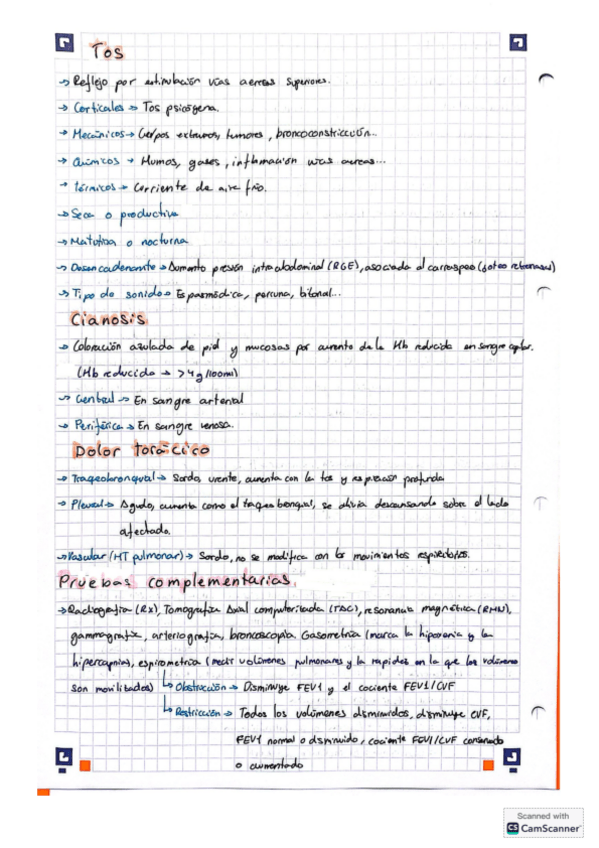 Tos
→ Reflejo por estimulación vías aereas superiores.
→ Corticales → Tos psicógena.
→ Mecánicos → Cuerpos extraños, tumores, broncoconstricción...
→ Químicos → Humos, gases, inflamación vías aereas...
→ Térmicos → Corriente de aire frío.
→ Seca o productiva
→ Matutina o nocturna
→ Desencadenante → Aumento presión intraabdominal (RGE), asociada al carraspeo (goteo retronasal)
→ Tipo de sonido → Espasmódica, perruna, bitonal...
Cianosis
→ Coloración azulada de piel y mucosas por aumento de la Hb reducida en sangre capilar.
(Hb reducida → >4g/100ml)
→ Central → En sangre arterial
→ Periférica → En sangre venosa.
Dolor torácico
→ Traqueobronquial → Sordo, urente, aumenta con la tos y respiración profunda
→ Pleural → Agudo, aumenta como el traqueobronquial, se alivia descansando sobre el lado
afectado.
→ Vascular (HT pulmonar) → Sordo, no se modifica con los movimientos respiratorios.
Pruebas complementarias
→ Radiografía (Rx), Tomografía Axial computarizada (TAC), resonancia magnética (RMN),
gammagrafía, arteriografía, broncoscopia. Gasometría (marca la hipoxemia y la
hipercapnia), espirometría (medir volúmenes pulmonares y la rapidez en la que los volúmenes
son movilizados) ↳ Obstrucción → Disminuye FEV1 y el cociente FEV1/CVF
↳ Restricción → Todos los volúmenes disminuidos, disminuye CVF,
FEV1 normal o disminuido, cociente FEV1/CVF conservado
o aumentado
Scanned with
CS CamScanner